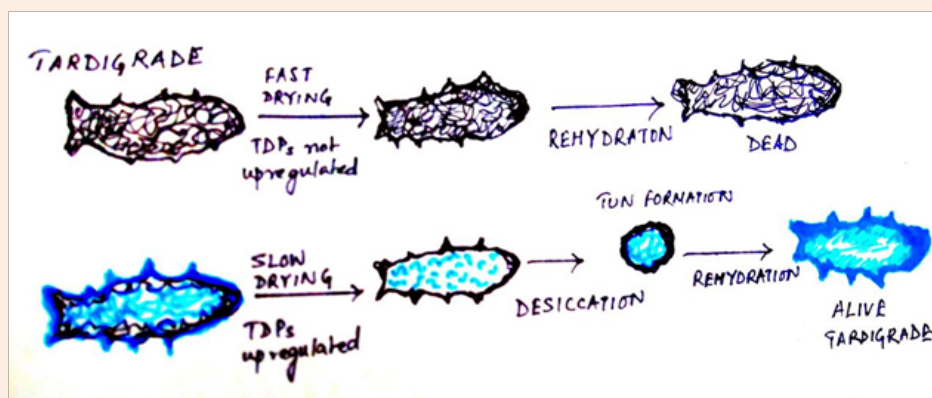 TARDIGRADE
FAST
DRYING
TDPs not
upregulated
REHYDRATON
DEAD
SLOW
DRYING
TDPs
upregulated
DESICCATION
TUN FORMATION
REHYDRATION
ALIVE
TARDIGRADE